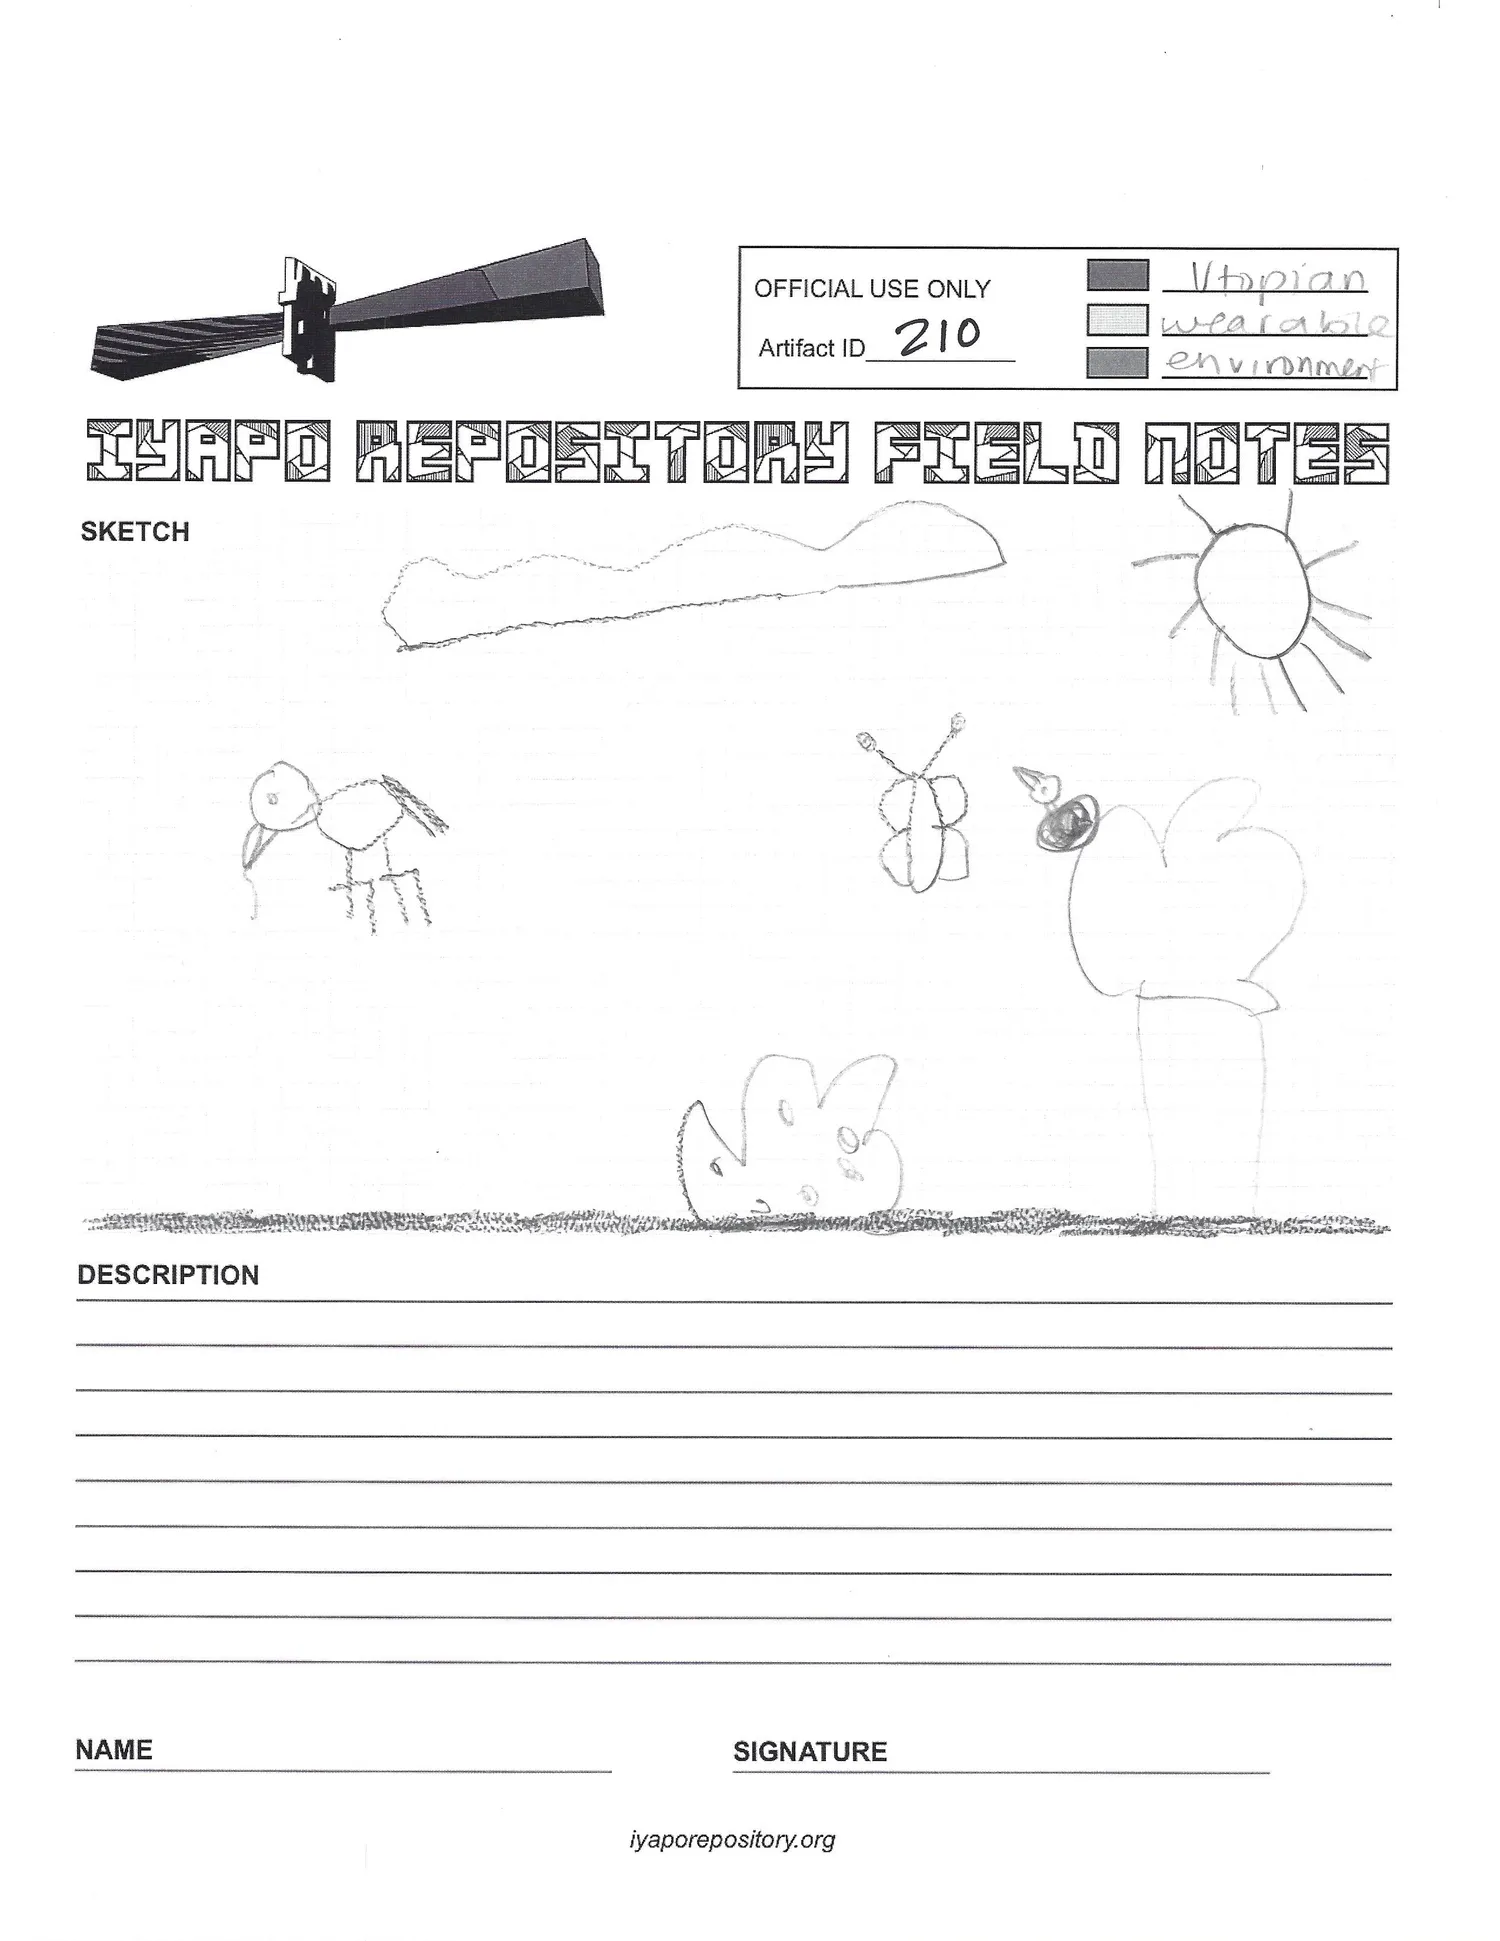 OFFICIAL USE ONLY
Artifact ID 210
Utopian
wearable
environment
IYAPO REPOSITORY FIELD NOTES
SKETCH
DESCRIPTION
NAME
SIGNATURE
iyaporepository.org